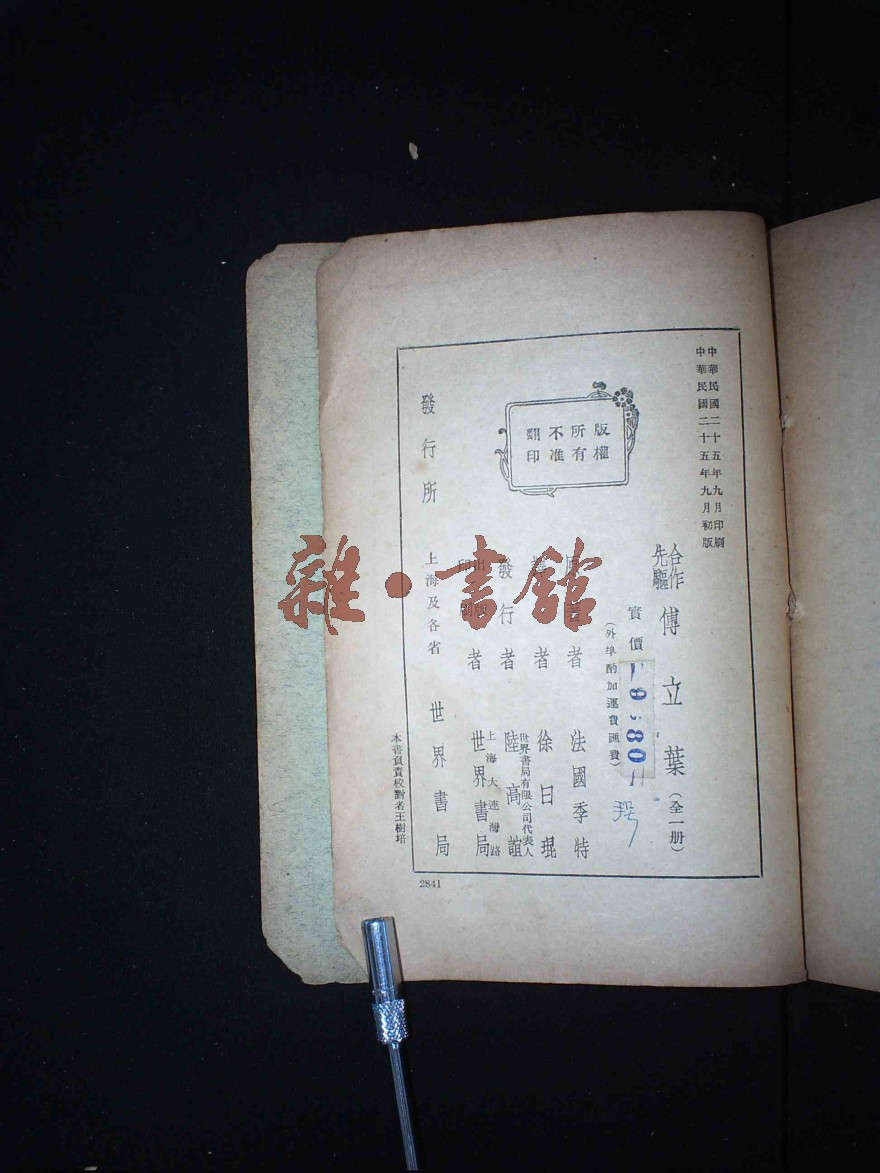 中華民國二十五年九月印刷
中華民國二十五年九月初版
合作先驅 傅立葉(全一册)
實價
9;80
(外埠酌加運費匯費)
著者 法國季特
者 徐日琨
發行者 世界書局有限公司代表人 陸高誼
出版印刷者 上海大連灣路 世界書局
發行所 上海及各省 世界書局
版權所有
不准翻印
本書負責校對者王樹培
2841
雜·書館